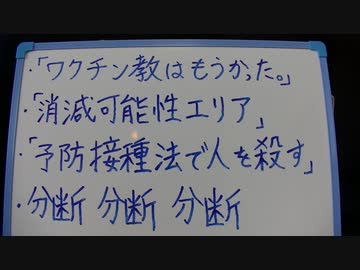 ・「ワクチン教はもうかった。」
・「消減可能性エリア」
・「予防接種法で人を殺す」
・分断 分断 分断